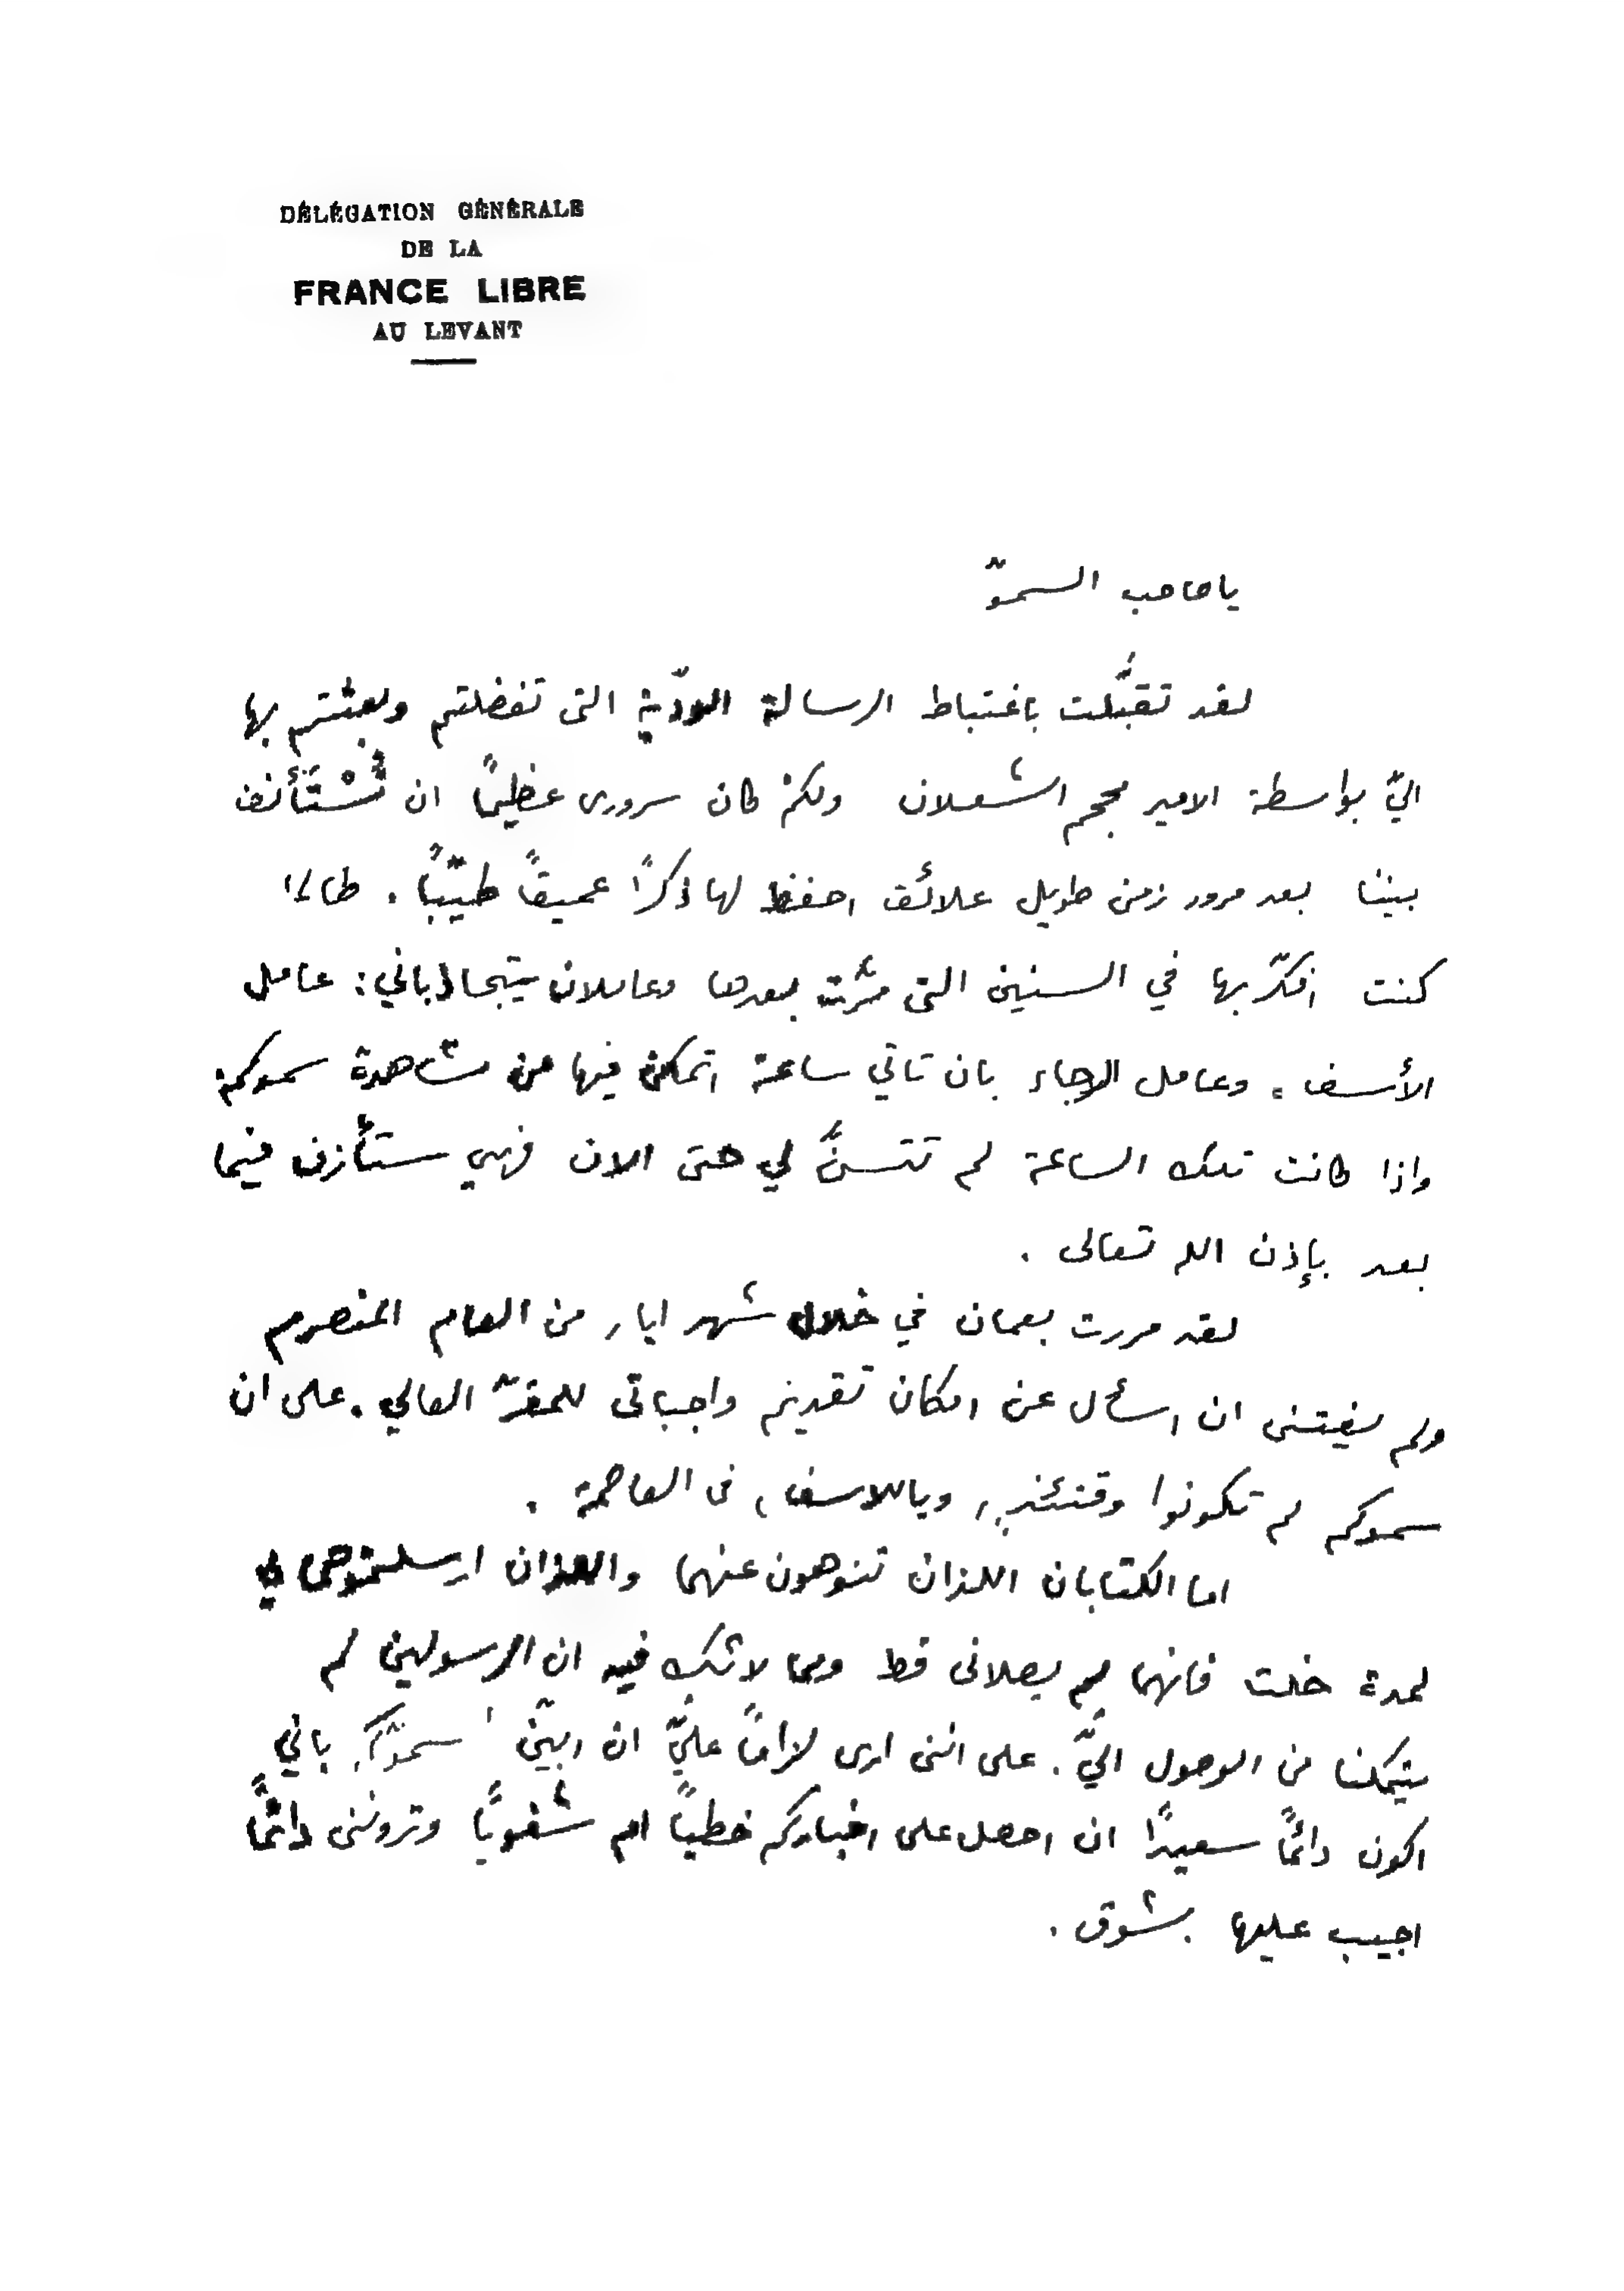 DÉLÉGATION GÉNÉRALE
DE LA
FRANCE LIBRE
AU LEVANT
يا صاحب السموّ
لقد تقبَّلتُ باغتباط الرسالة الودّية التى تفضلتم وبعثتم بها
اليَّ بواسطة الامير محجم الشعلان ولكمْ كان سرورى عظيمًا ان تُسْتَأنف
بيننا بعد مرور زمن طويل علائق احفظ لها ذكرًا عميقًا طيّبًا . طالما
كنت افكّر بها في السنين التى مرّت بعدها وعاملان يتجاذباني : عامل
الأسف . وعامل الرجاء بان تاتي ساعة اتمكن فيها من مشاهدة سموكم
واذا كانت تلك الساعة لم تتسنَّ لي حتى الان فهي ستأزف فيما
بعد بإذن الله تعالى .
لقد مررت بعمان في خلال شهر ايار من العام المنصرم
ولم يفتنى ان اسأل عن امكان تقديم واجباتى للمقرّ العالي . على ان
سموكم لم تكونوا وقتئذٍ ، وياللاسف ، فى العاصمة .
اما الكتابان اللذان تنوهون عنهما واللذان ارسلتموهما لي
لمدة خلت فانهما لم يصلانى قط ومما لا شك فيه ان الرسولين لم
يتمكنا من الوصول اليَّ . على اننى ارى لزامًا عليَّ ان ابيّن سموّكم باني
اكون دائمًا سعيدًا ان احصل على اخباركم خطيًا ام شفويًا وتروننى دائمًا
اجيب عليها بشوق .